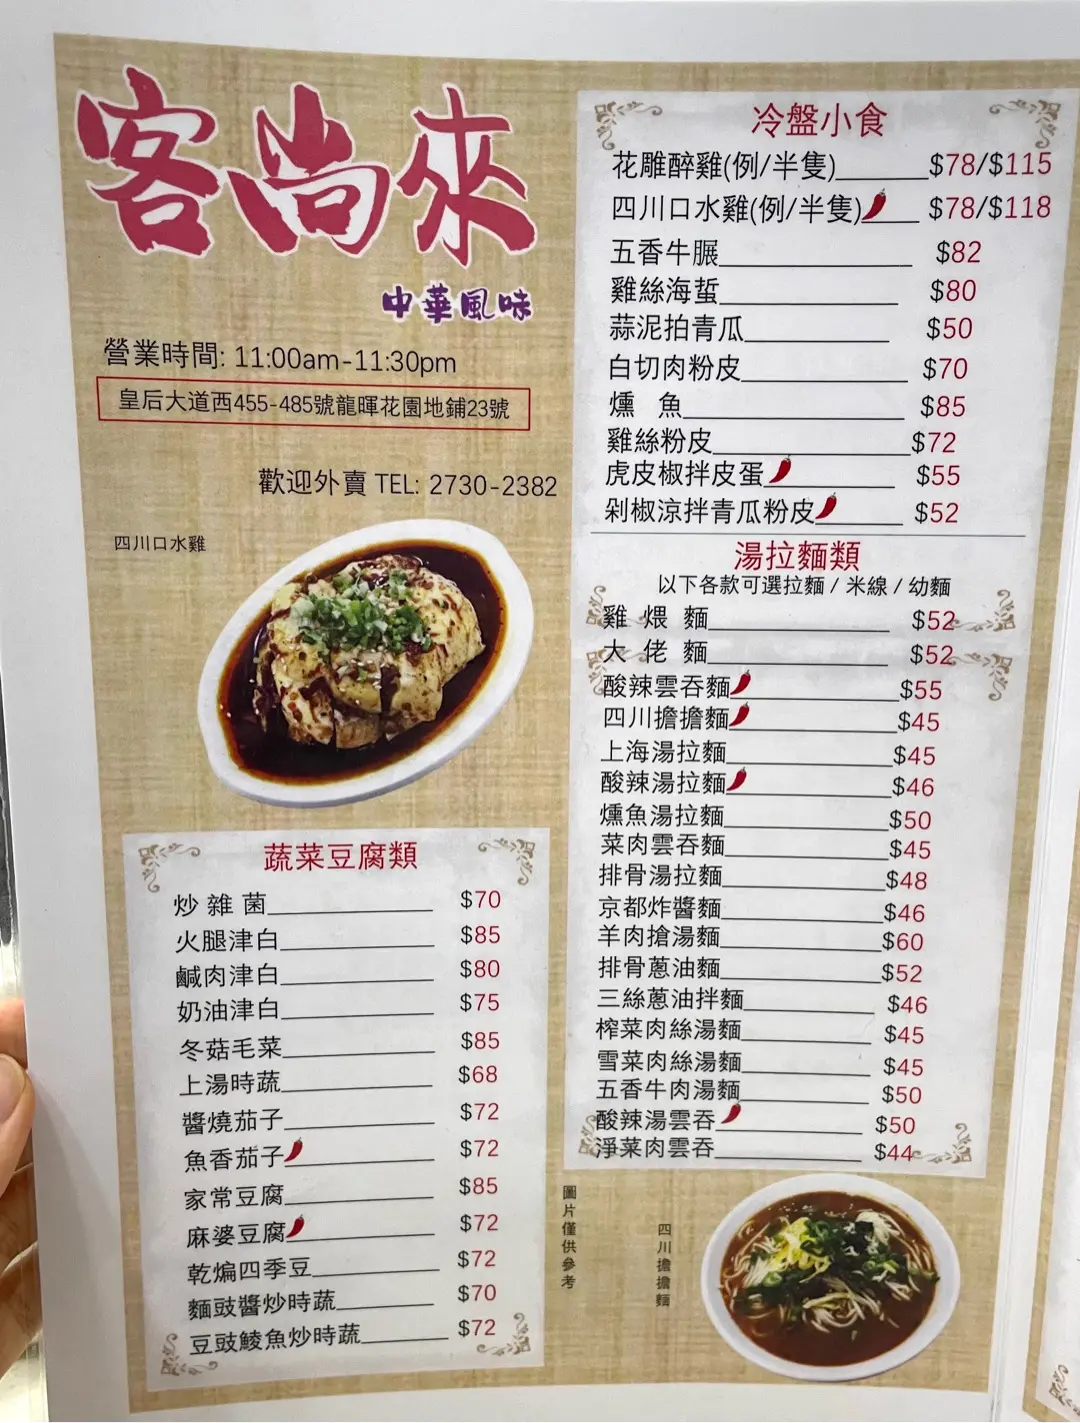 客尚來
中華風味
營業時間: 11:00am-11:30pm
皇后大道西455-485號龍暉花園地鋪23號
歡迎外賣 TEL: 2730-2382
四川口水雞
蔬菜豆腐類
炒雜菌 $70
火腿津白 $85
鹹肉津白 $80
奶油津白 $75
冬菇毛菜 $85
上湯時蔬 $68
醬燒茄子 $72
魚香茄子 $72
家常豆腐 $85
麻婆豆腐 $72
乾煸四季豆 $72
麵豉醬炒時蔬 $70
豆豉鯪魚炒時蔬 $72
冷盤小食
花雕醉雞(例/半隻) $78/$115
四川口水雞(例/半隻) $78/$118
五香牛𦟌 $82
雞絲海蜇 $80
蒜泥拍青瓜 $50
白切肉粉皮 $70
燻魚 $85
雞絲粉皮 $72
虎皮椒拌皮蛋 $55
剁椒涼拌青瓜粉皮 $52
湯拉麵類
以下各款可選拉麵 / 米線 / 幼麵
雞煨麵 $52
大佬麵 $52
酸辣雲吞麵 $55
四川擔擔麵 $45
上海湯拉麵 $45
酸辣湯拉麵 $46
燻魚湯拉麵 $50
菜肉雲吞麵 $45
排骨湯拉麵 $48
京都炸醬麵 $46
羊肉搶湯麵 $60
排骨蔥油麵 $52
三絲蔥油拌麵 $46
榨菜肉絲湯麵 $45
雪菜肉絲湯麵 $45
五香牛肉湯麵 $50
酸辣湯雲吞 $50
淨菜肉雲吞 $44
圖片僅供參考
四川擔擔麵